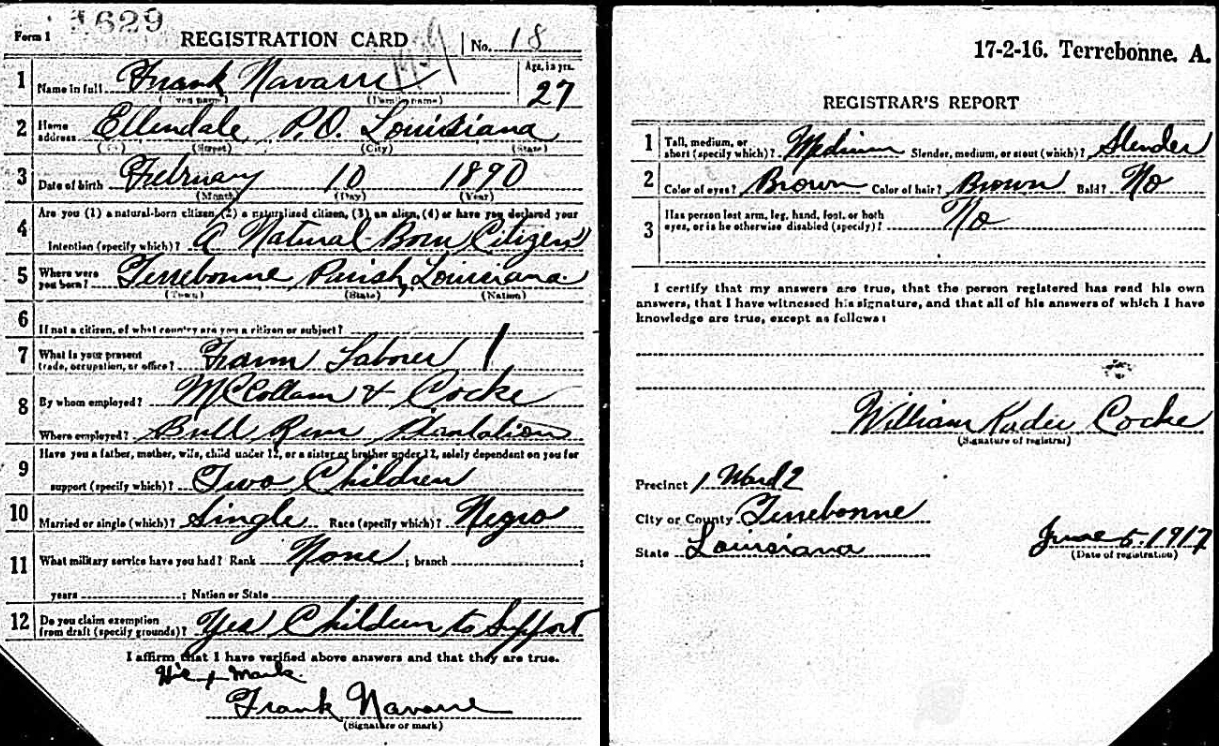 Form 1 1629 REGISTRATION CARD No. 18
1 Name in full Frank Navarre Age, in yrs. 27
(Given name) (Family name)
2 Home address Ellendale P.O. Louisiana
(No.) (Street) (City) (State)
3 Date of birth February 10 1890
(Month) (Day) (Year)
4 Are you (1) a natural-born citizen, (2) a naturalized citizen, (3) an alien, (4) or have you declared your
intention (specify which)? A Natural-Born Citizen
5 Where were you born? Terrebonne Parish, Louisiana
(Town) (State) (Nation)
6 If not a citizen, of what country are you a citizen or subject?
7 What is your present trade, occupation, or office? Farm Laborer 1
8 By whom employed? McCollam & Cocke
Where employed? Bull Run Plantation
9 Have you a father, mother, wife, child under 12, or a sister or brother under 12, solely dependent on you for
support (specify which)? Two Children
10 Married or single (which)? Single Race (specify which)? Negro
11 What military service have you had? Rank None ; branch ;
years ; Nation or State
12 Do you claim exemption from draft (specify grounds)? Yes Children to Support
I affirm that I have verified above answers and that they are true.
His x Mark
Frank Navarre
(Signature or mark)
17-2-16. Terrebonne. A.
REGISTRAR'S REPORT
1 Tall, medium, or short (specify which)? Medium Slender, medium, or stout (which)? Slender
2 Color of eyes? Brown Color of hair? Brown Bald? No
3 Has person lost arm, leg, hand, foot, or both eyes, or is he otherwise disabled (specify)? No
I certify that my answers are true, that the person registered has read his own
answers, that I have witnessed his signature, and that all of his answers of which I have
knowledge are true, except as follows:
William Cocke
(Signature of registrar)
Precinct 1 Ward 2
City or County Terrebonne
State Louisiana June 5, 1917
(Date of registration)